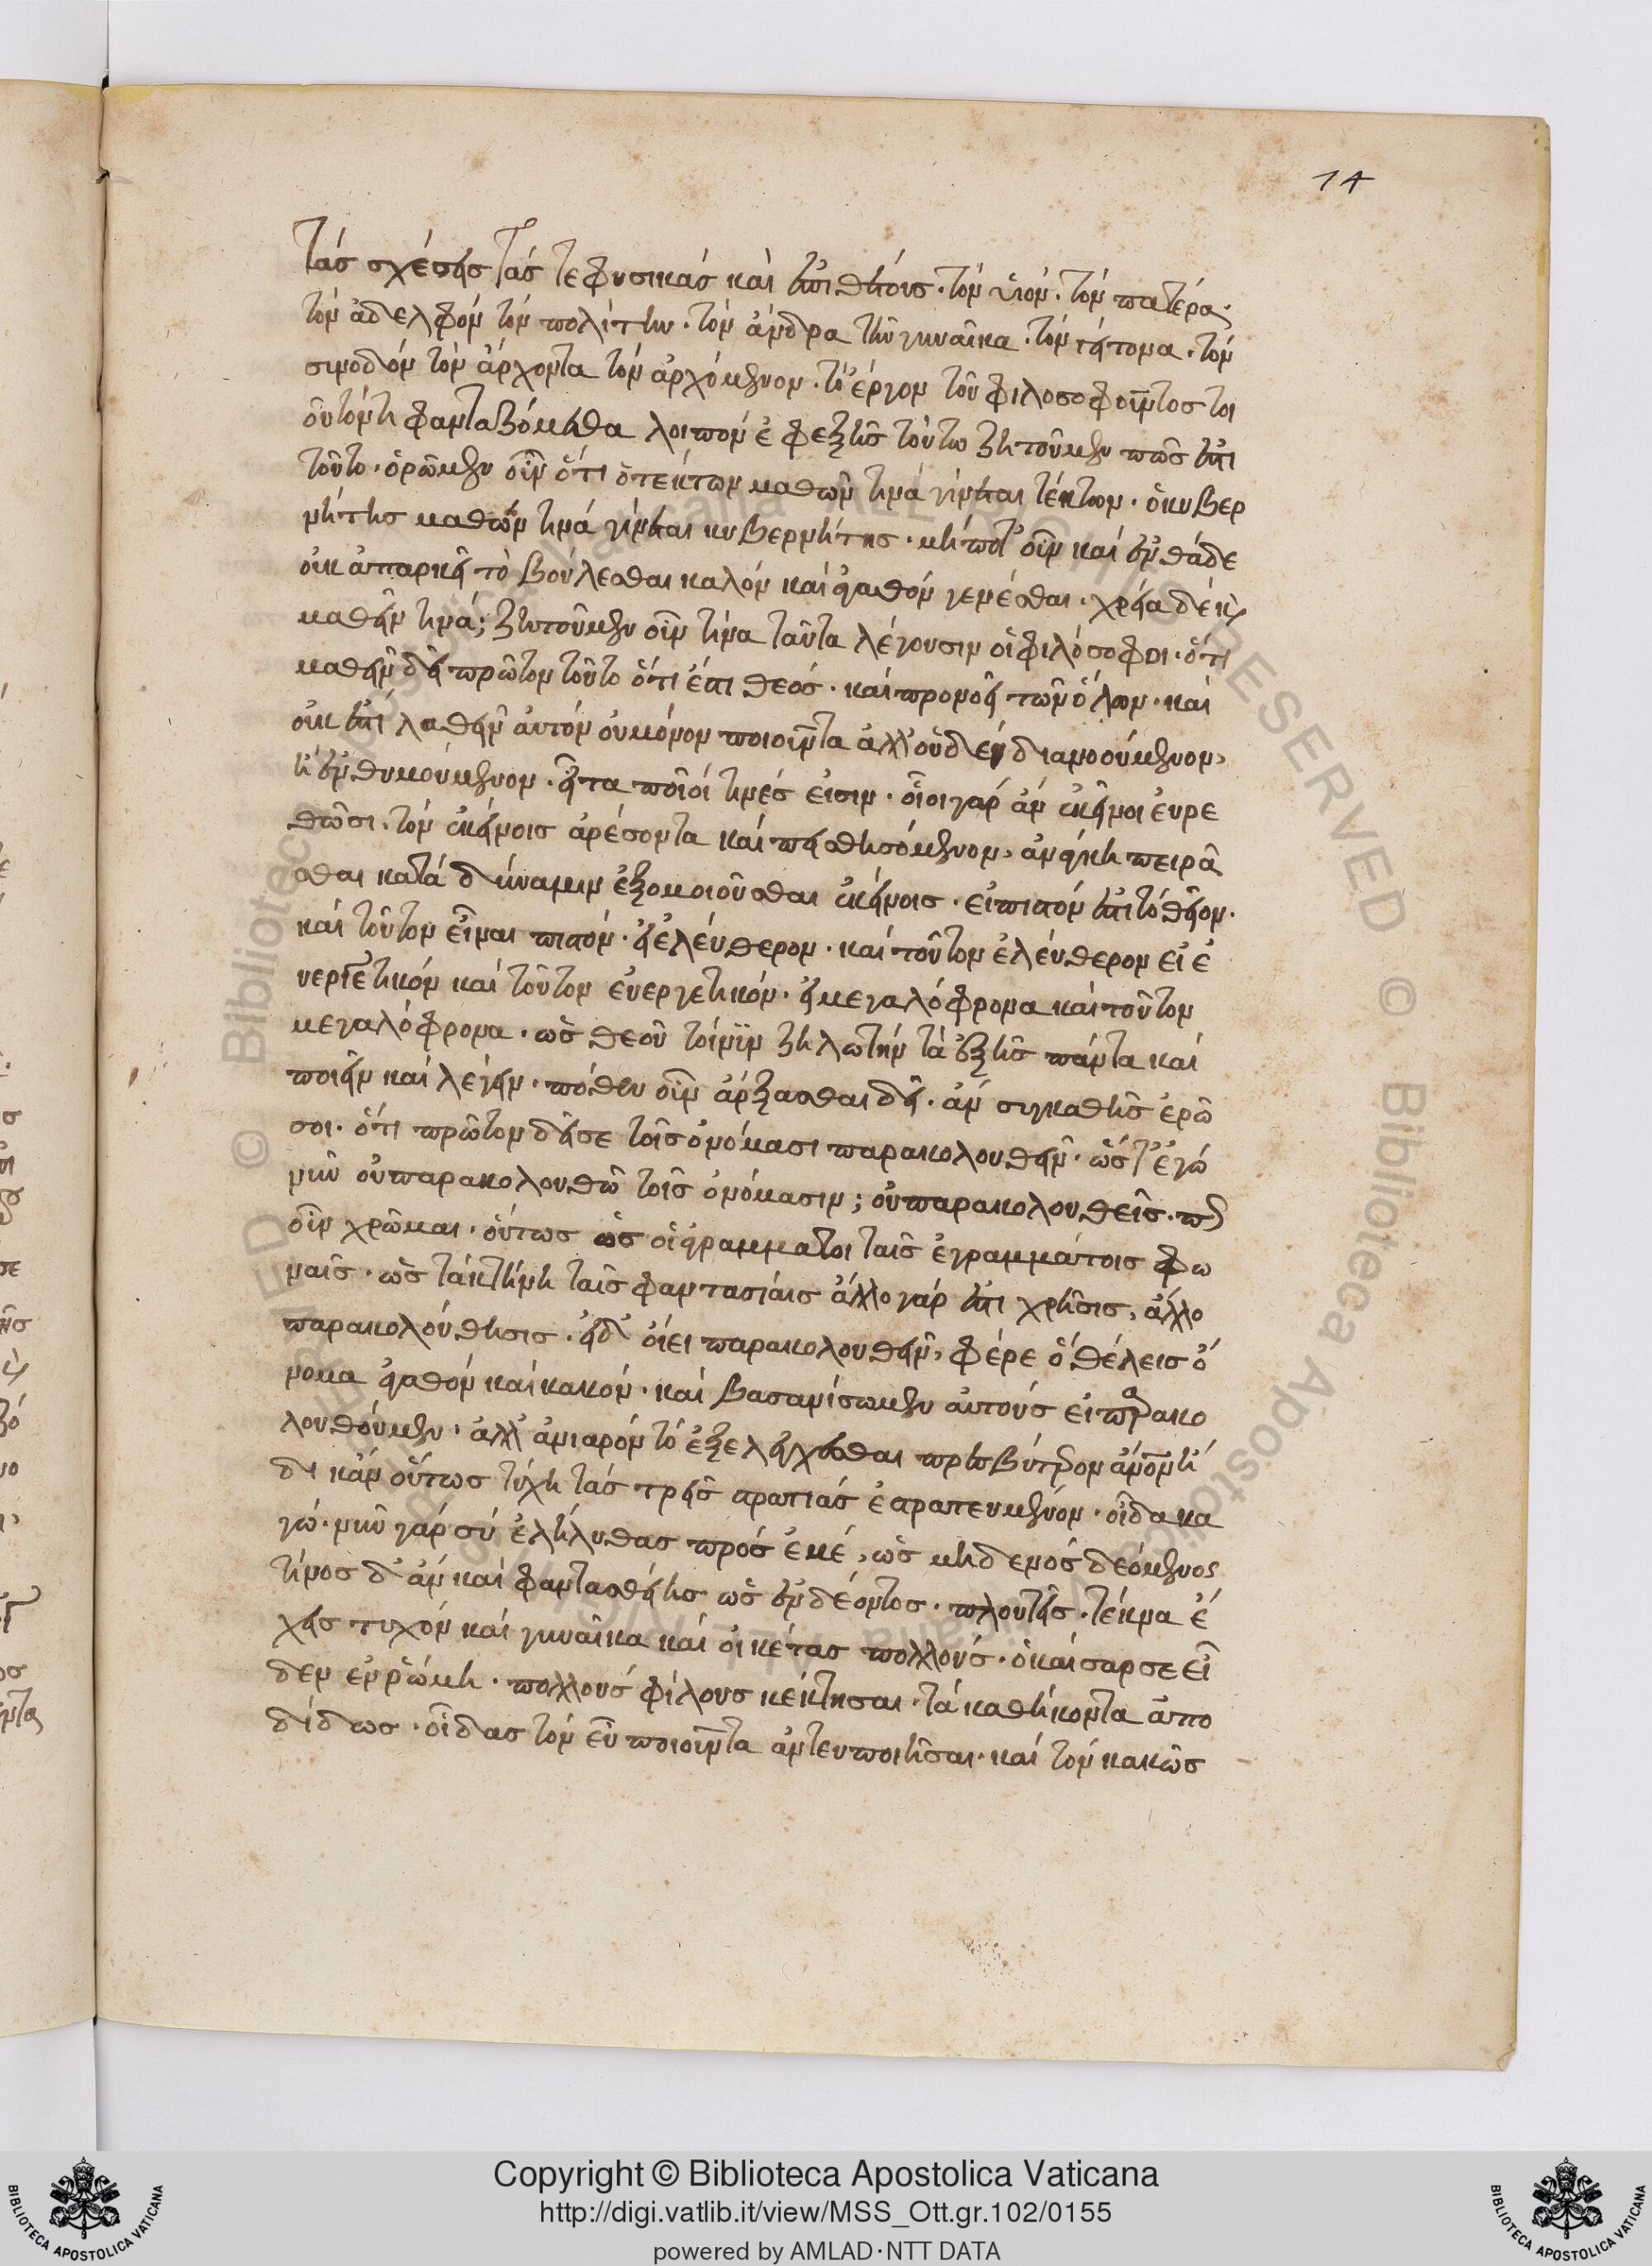 14
τὰς σχέσεις τάς τε φυσικὰς καὶ ἐπιθέτους· τὸν υἱόν· τὸν πατέρα·
τὸν ἀδελφὸν τὸν πολίτην· τὸν ἄνδρα τὴν γυναῖκα· τὸν γείτονα· τὸν
σύνοδον τὸν ἄρχοντα τὸν ἀρχόμενον· τὸ ἔργον τοῦ φιλοσοφοῦντος τοι
οῦτόν τι φανταζόμεθα λοιπὸν ἐφεξῆς τούτω ζητοῦμεν πῶς ἐστι
τοῦτο· ὁρῶμεν οὖν ὅτι ὁ τέκτων μαθών τινα γίνεται τέκτων· ὁ κυβερ
νήτης μαθών τινα γίνεται κυβερνήτης· μήποτ' οὖν καὶ ἐνθάδε
οὐκ ἀπαρκεῖ τὸ βούλεσθαι καλὸν καὶ ἀγαθὸν γενέσθαι· χρεία δὲ καὶ
μαθεῖν τινα; ζητοῦμεν οὖν τίνα ταῦτα λέγουσιν οἱ φιλόσοφοι· ὅτι
μαθεῖν δεῖ πρῶτον τοῦτο ὅτι ἔστι θεός· καὶ προνοεῖ τῶν ὅλων· καὶ
οὐκ ἔστι λαθεῖν αὐτὸν οὐ μόνον ποιοῦντα ἀλλ' οὐδὲν διανοούμενον,
ἢ ἐνθυμούμενον· εἶτα ποῖοί τινές εἰσιν· οἷοι γὰρ ἂν ἐκεῖνοι εὑρε
θῶσι· τὸν ἐκείνοις ἀρέσοντα καὶ πεισθησόμενον, ἀνάγκη πειρᾶ
σθαι κατὰ δύναμιν ἐξομοιοῦσθαι ἐκείνοις· εἰ πιστόν ἐστι τὸ θεῖον·
καὶ τοῦτον εἶναι πιστόν· εἰ ἐλεύθερον· καὶ τοῦτον ἐλεύθερον εἰ ε
ὐεργετικόν καὶ τοῦτον εὐεργετικόν· εἰ μεγαλόφρονα καὶ τοῦτον
μεγαλόφρονα· ὡς θεοῦ τοίνυν ζηλωτὴν τὰ ἑξῆς πάντα καὶ
ποιεῖν καὶ λέγειν· πόθεν οὖν ἄρξασθαι δεῖ· ἂν συγκαθῆς ἐρῶ
σοι· ὅτι πρῶτον δεῖ σε τοῖς ὀνόμασι παρακολουθεῖν· ὥστ' ἐγὼ
νῦν οὐ παρακολουθῶ τοῖς ὀνόμασιν; οὐ παρακολουθεῖς· πῶς
οὖν χρῶμαι· οὕτως ὡς οἱ ἀγράμματοι ταῖς ἐγγραμμάτοις φω
ναῖς· ὡς τὰ κτήνη ταῖς φαντασίαις ἄλλο γάρ ἐστι χρῆσις, ἄλλο
παρακολούθησις· εἰ δ' οἴει παρακολουθεῖν, φέρε ὃ θέλεις ὄ
νομα ἀγαθὸν καὶ κακόν· καὶ βασανίσωμεν αὑτοὺς εἰ παρακο
λουθοῦμεν· ἀλλ' ἀνιαρὸν τὸ ἐξελέγχεσθαι πρεσβύτερον ἄνθρωπον ἤ
δη κἂν οὕτως τύχη τὰς τρεῖς στρατιὰς ἐστρατευμένον· οἶδα κα
γώ· νῦν γὰρ σὺ ἐλήλυθας πρὸς ἐμέ, ὡς μηδενὸς δεόμενος
τίνος δ' ἂν καὶ φαντασθείης ὡς ἐνδέοντος· πλουτεῖς· τέκνα ἔ
χεις τυχὸν καὶ γυναῖκα καὶ οἰκέτας πολλούς· ὁ καῖσαρ σε εἶ
δεν ἐν ῥώμη· πολλοὺς φίλους κέκτησαι· τὰ καθήκοντα ἀπο
δίδως· οἶδας τὸν εὖ ποιοῦντα ἀντευποιῆσαι· καὶ τὸν κακῶς
Copyright © Biblioteca Apostolica Vaticana
http://digi.vatlib.it/view/MSS_Ott.gr.102/0155
powered by AMLAD·NTT DATA